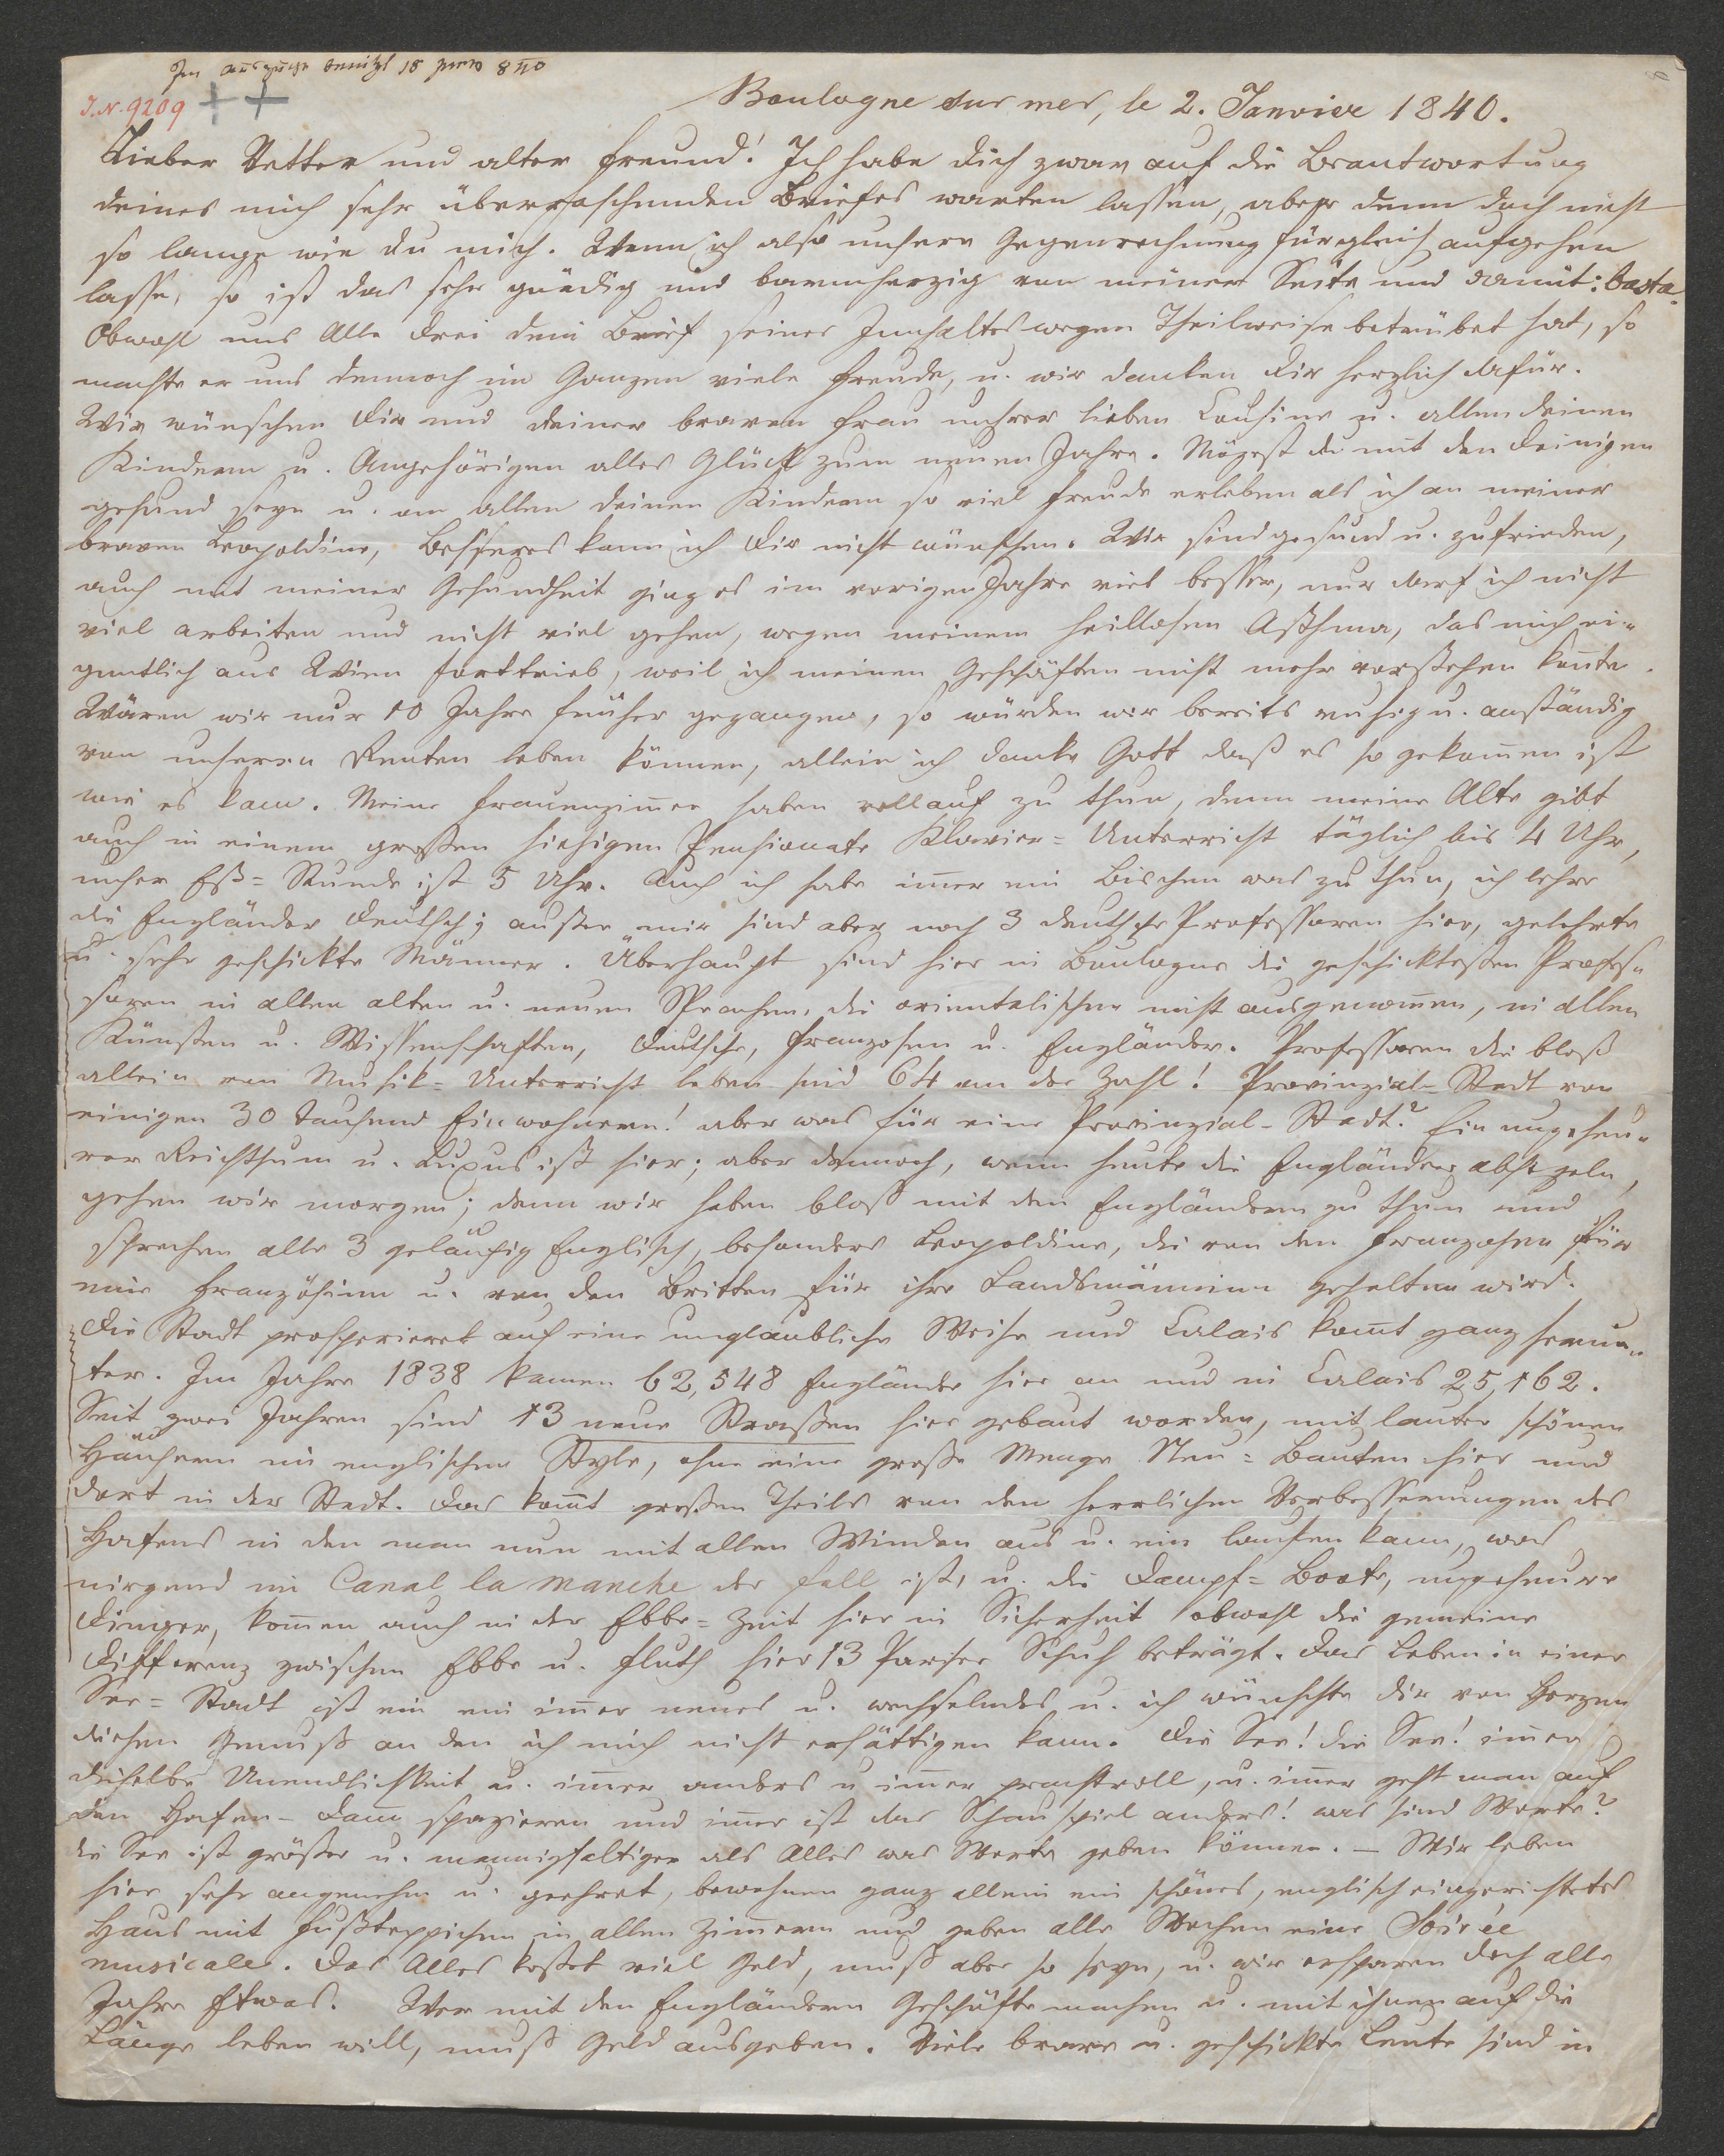 Im Auszuge benützt 18 840
J.N. 9209
Boulogne sur mer, le 2. Janvier 1840.
Lieber Vetter und alter Freund! Ich habe dich zwar auf die Beantwortung
deines mich sehr überraschenden Briefes warten lassen, aber denn doch nicht
so lange wie du mich. Wenn ich also unsere Gegenrechnung für gleich aufgehen
lasse, so ist das sehr gnädig und barmherzig von meiner Seite und damit: basta.
Obwohl uns Alle drei dein Brief seines Innhaltes wegen Theilweise betrübet hat, so
machte er uns dennoch im Ganzen viele Freude, u. wir danken dir herzlich dafür.
Wir wünschen dir und deiner braven Frau unsrer lieben Cousine u. allen deinen
Kindern u. Angehörigen alles Glück zum neuen Jahre. Mögest du mit den deinigen
gesund seyn u. an allen deinen Kindern so viel Freude erleben als ich an meiner
braven Leopoldine, besseres kann ich dir nicht wünschen. Wir sind gesund u. zufrieden,
auch mit meiner Gesundheit ging es im vorigen Jahre viel besser, nur darf ich nicht
viel arbeiten und nicht viel gehen, wegen meinem heillosen Asthma, das mich ei-
gentlich aus Wien forttrieb, weil ich meinen Geschäften nicht mehr vorstehen konnte.
Wären wir nur 10 Jahre früher gegangen, so würden wir bereits ruhig u. anständig
von unseren Renten leben können, allein ich danke Gott daß es so gekom̄en ist
wie es kam. Meine Frauenzim̄er haben vollauf zu thun, denn meine Alte gibt
auch in einem großen hiesigen Pensionate Klavier-Unterricht täglich bis 4 Uhr,
unser Eß-Stunde ist 5 Uhr. Auch ich habe im̄er ein Bischen was zu thun, ich lehre
die Engländer deutsch; außer mir sind aber noch 3 deutsche Professoren hier, gelehrte
u. sehr geschickte Männer. Überhaupt sind hier in Boulogne die geschicktesten Profes-
soren in allen alten u. neuen Sprachen, die orientalischen nicht ausgenom̄en, in allen
Künsten u. Wissenschaften, deutsche, Franzosen u. Engländer. Professoren die bloß
allein von Musik-Unterricht leben sind 64 an der Zahl! Provinzial-Stadt von
einigen 30 tausend Einwohnern! aber was für eine Provinzial-Stadt? Ein ungeheu-
rer Reichthum u. Luxus ist hier; aber dennoch, wenn heute die Engländer absegeln,
gehen wir morgen; denn wir haben bloß mit den Engländern zu thun und
sprechen alle 3 geläufig Englisch, besonders Leopoldine, die von den Franzosen für
eine Französinn u. von den Britten für ihre Landsmänninn gehalten wird.
Die Stadt prosperieret auf eine unglaubliche Weise und Calais kom̄t ganz herun-
ter. Im Jahre 1838 kamen 62,548 Engländer hier an und in Calais 25,162.
Seit zwei Jahren sind 13 neue Strassen hier gebaut worden, mit lauter schönen
Häusern im englischen Style, ohne eine große Menge Neu-Bauten hier und
dort in der Stadt. Das kom̄t großen Theils von den herrlichen Verbesserungen des
Hafens in den man nun mit allen Winden aus u. ein laufen kann, was
nirgend im Canal la manche der Fall ist, u. die Dampf-Boote, ungeheure
Dinger, kom̄en auch in der Ebbe-Zeit hier in Sicherheit obwohl die gemeine
Differenz zwischen Ebbe u. Fluth hier 13 Pariser Schuh beträgt. Das Leben in einer
See-Stadt ist ein ein im̄er neues u. wechselndes u. ich wünschte dir von Herzen
diesen Genuß an den ich mich nicht ersättigen kann. Die See! die See! im̄er
dieselbe Unendlichkeit u. im̄er anders u im̄er prachtvoll, u. im̄er geht man auf
den Hafen-Dam̄ spazieren und im̄er ist das Schauspiel anders! was sind Worte?
die See ist größer u. mannigfaltiger als Alles was Worte geben können. — Wir leben
hier sehr angenehm u. geehret, bewohnen ganz allein ein schönes, englisch eingerichtetes
Haus mit Fußteppichen in allen Zim̄ern und geben alle Wochen eine Soirée
musicale. Das Alles kostet viel Geld, muß aber so seyn, u. wir ersparen doch alle
Jahre Etwas. Wer mit den Engländern Geschäfte machen u. mit ihnen auf die
Länge leben will, muß Geld ausgeben. Viele brave u. geschickte Leute sind in